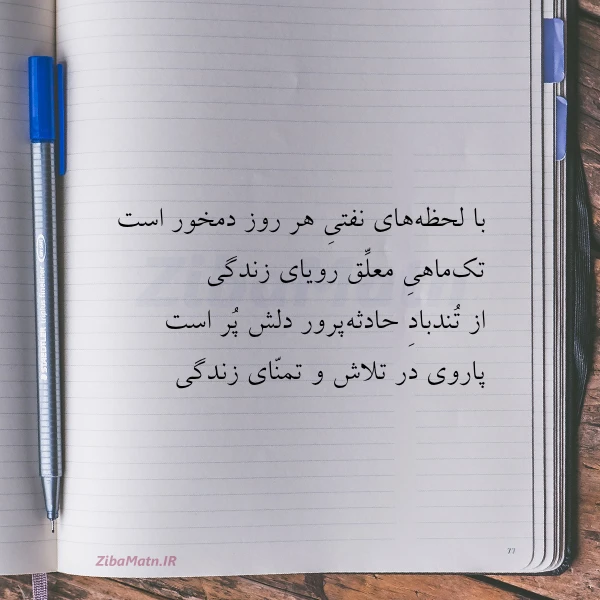 با لحظه‌های نفتیِ هر روز دمخور است
تک‌ماهیِ معلِّق رویای زندگی
از تُندبادِ حادثه‌پرور دلش پُر است
پاروی در تلاش و تمنّای زندگی
77
ZibaMatn.IR